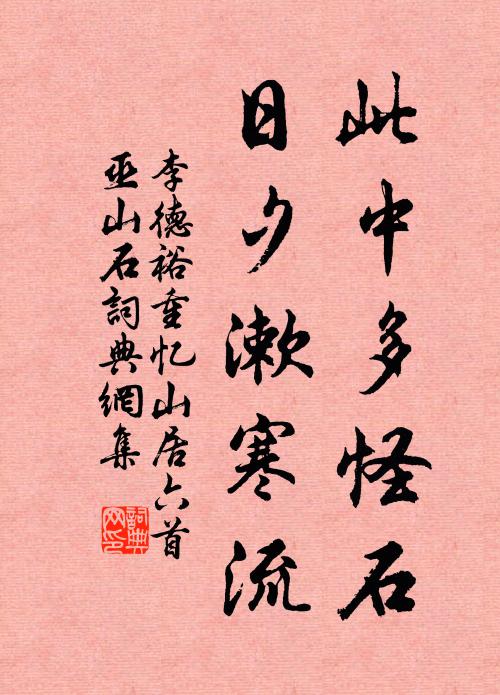 此中多怪石
日夕漱寒流
李德裕重忆山居六首
巫山石詞典網集
詞典网印